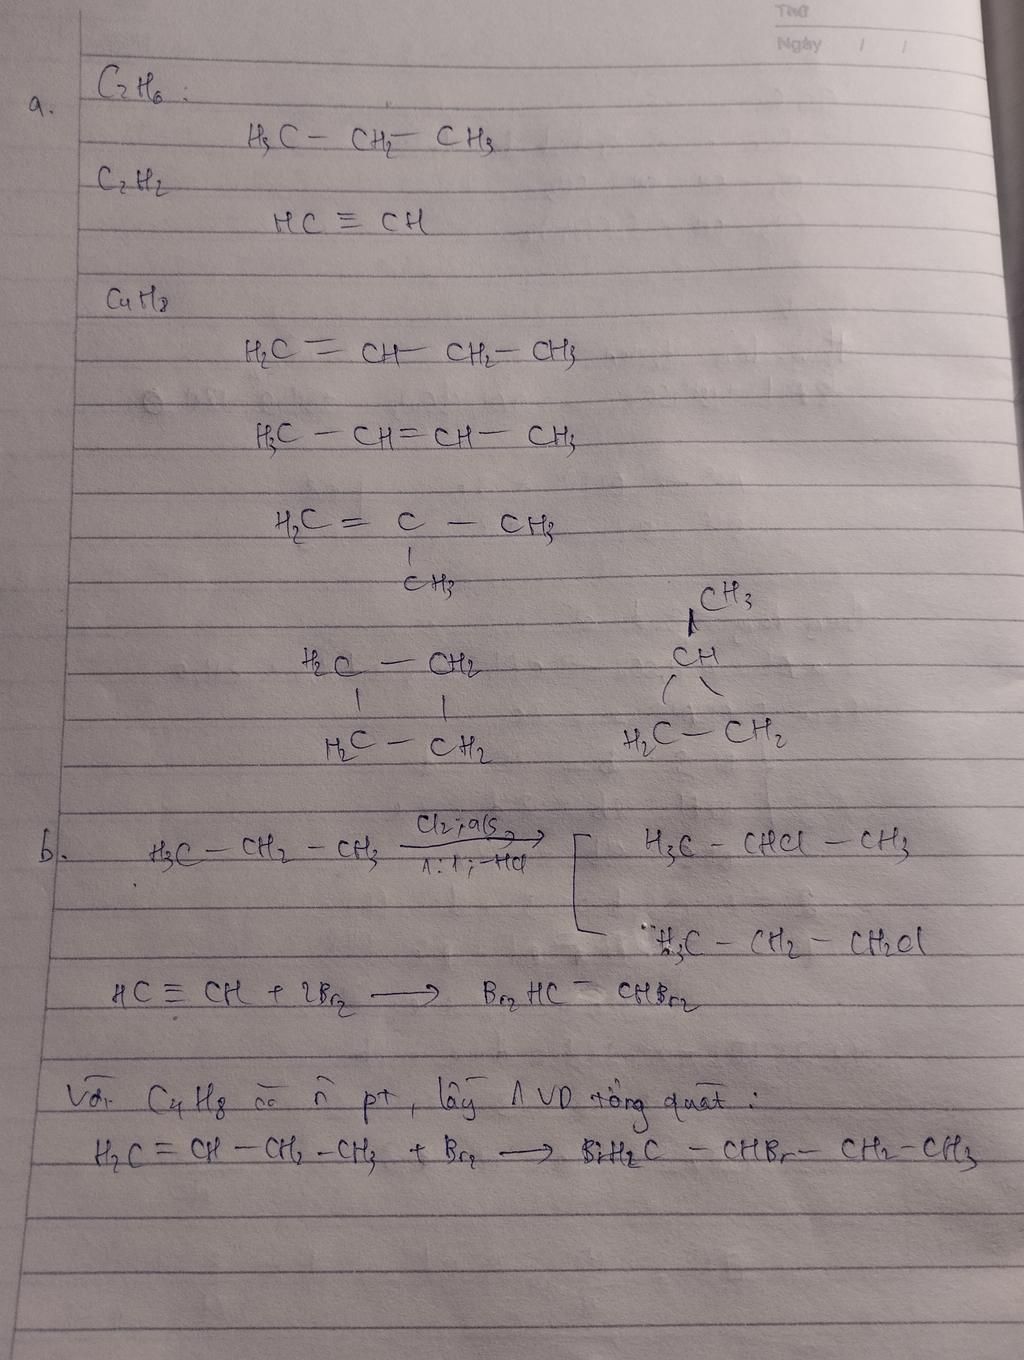 Thứ
Ngày / /
a. C2H6:
H3C - CH2 - CH3
C2H2
HC ≡ CH
C4H8
H2C = CH - CH2 - CH3
H3C - CH = CH - CH3
H2C = C - CH3
CH3
CH3
H2C - CH2 CH
H2C - CH2 H2C - CH2
b. H3C - CH2 - CH3 Cl2; a/s 1:1; -HCl → H3C - CHCl - CH3
H3C - CH2 - CH2Cl
HC ≡ CH + 2Br2 → Br2HC - CHBr2
Với C4H8 có n̂ pt, lấy 1 VD tổng quát:
H2C = CH - CH2 - CH3 + Br2 → BrH2C - CHBr - CH2 - CH3